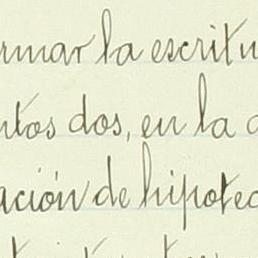 rmar la escritu
ntos dos, en la
ación de hipotec